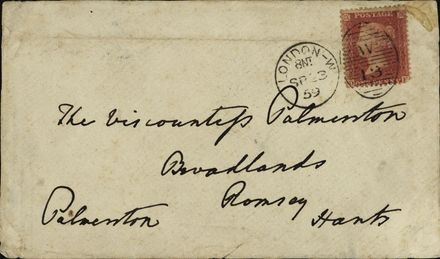 POSTAGE
LONDON-W
8NT
SP 23
59
W
13
The Viscountess Palmerston
Broadlands
Romsey
Palmerston
Hants